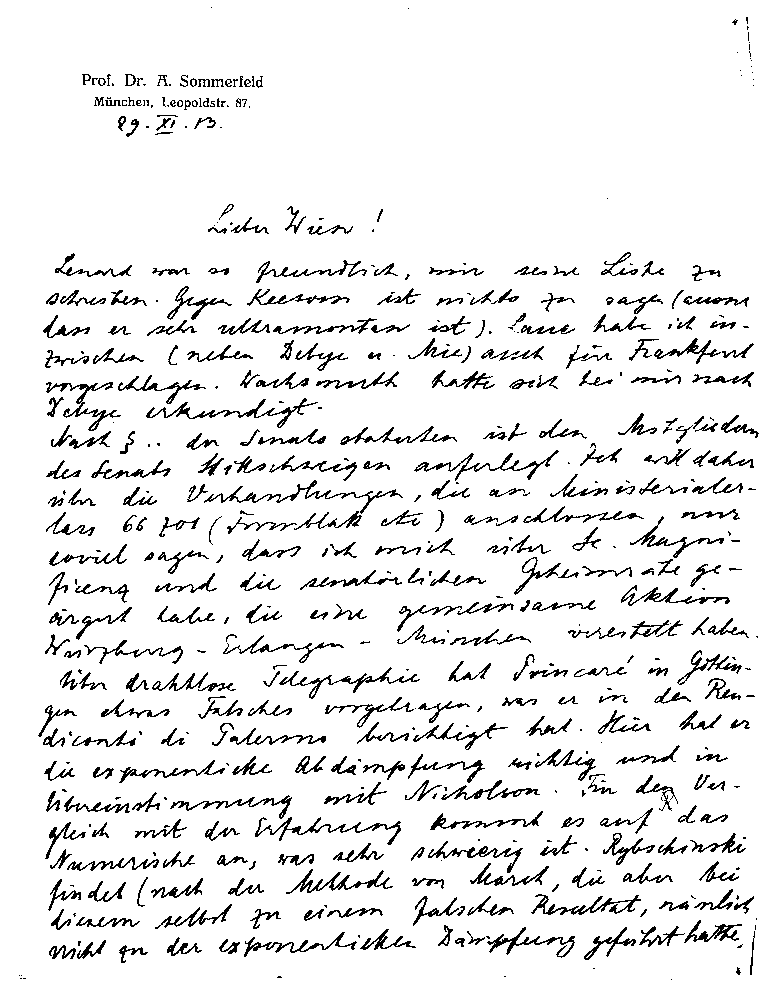 Prof. Dr. A. Sommerfeld
München, Leopoldstr. 87.
29. XI. 13.
Lieber Wien!
Lenard war so freundlich, mir seine Liste zu
schreiben. Gegen Keesom ist nichts zu sagen (ausser
dass er sehr ultramontan ist). Laue habe ich in-
zwischen (neben Debye u. Mie) auch für Frankfurt
vorgeschlagen. Wachsmuth hatte sich bei mir nach
Debye erkundigt.
Nach § .. der Senatsstatuten ist den Mitgliedern
des Senats Stillschweigen auferlegt. Ich will daher
über die Verhandlungen, die an Ministerialer-
lass 66 701 (Formblatt etc) anschlossen, nur
soviel sagen, dass ich mich über Se. Magni-
ficenz und die senatorlichen Geheimräte ge-
ärgert habe, die eine gemeinsame Aktion
Würzburg - Erlangen - München vereitelt haben.
Über drahtlose Telegraphie hat Poincaré in Göttin-
gen etwas Falsches vorgetragen, was er in den Ren-
diconti di Palermo berichtigt hat. Hier hat er
die exponentielle Abdämpfung richtig und in
Übereinstimmung mit Nicholson. Für den Ver-
gleich mit der Erfahrung kommt es auf das
Numerische an, was sehr schwierig ist. Rybschinski
findet (nach der Methode von March, die aber bei
diesem selbst zu einem falschen Resultat, nämlich
nicht zu der exponentiellen Dämpfung geführt hatte,